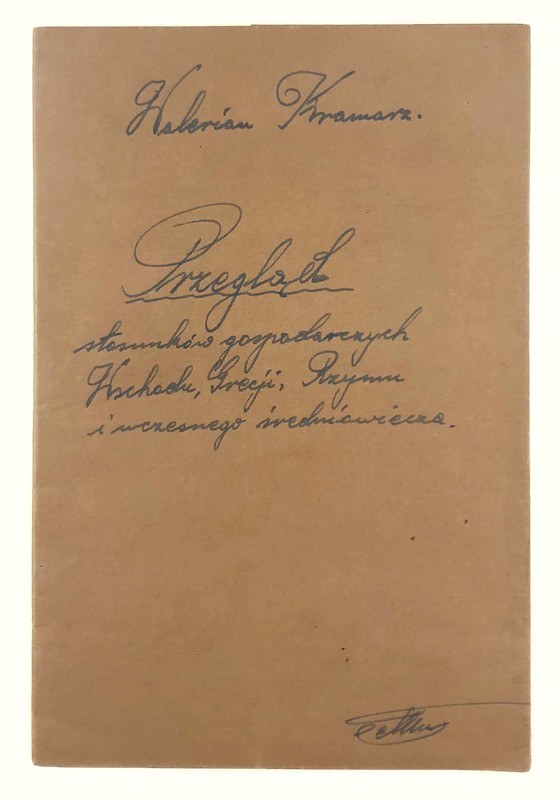 Walerian Kramarz.
Przegląd
stosunków gospodarczych
Wschodu, Grecji, Rzymu
i wczesnego średniowiecza.